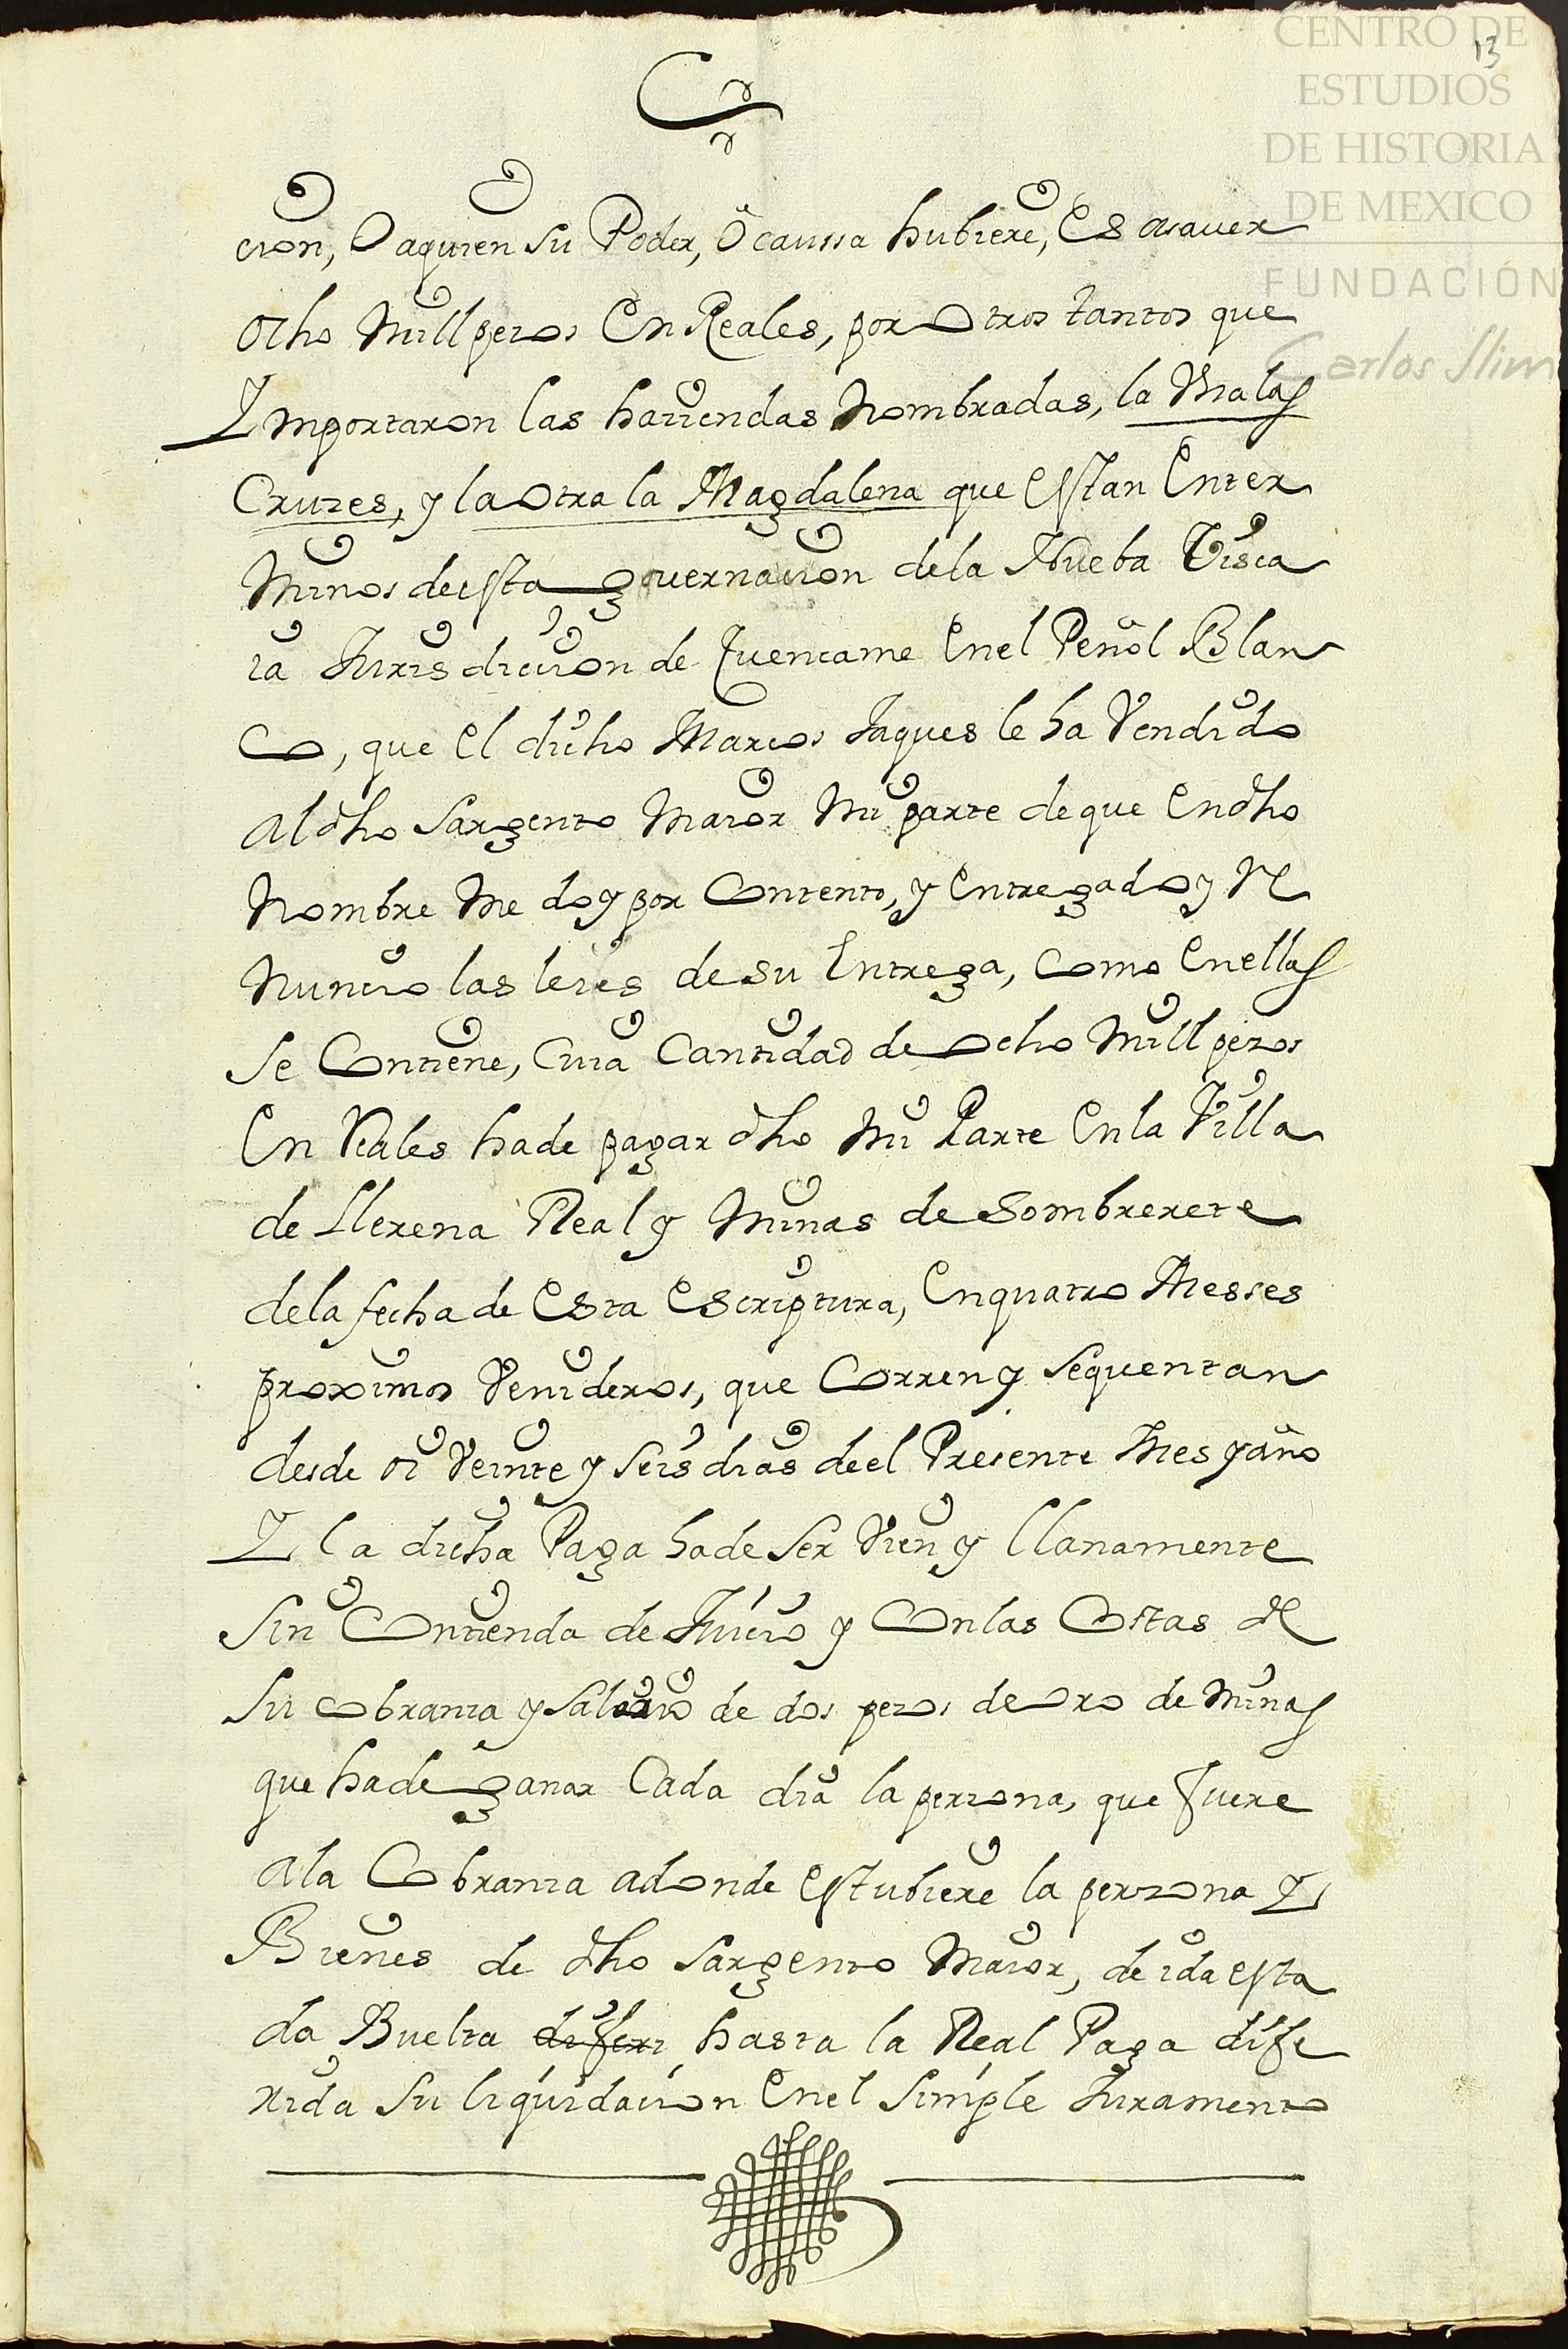 CENTRO DE
ESTUDIOS
DE HISTORIA
DE MEXICO
FUNDACIÓN
Carlos Slim
13
cion, O aquien su Poder, O caussa hubiere, Es asaver
ocho mill pesos En Reales, por otros tantos que
Importaron las haciendas Nombradas, la Unalas
Cruzes, y la otra la Magdalena que estan Enter
minos deesta governacion dela Nueba Visca
ia Jurisdiccion de Cuencame Enel Peñol Blan
co, que el dicho Marcos Jaques le ha Vendido
al dho Sargento Maior mi parte de que En dho
Nombre me doy por Contento, y entregado y Re
nuncio las leies de su Entrega, como Enellas
se Contiene, Cuia Cantidad de ocho mill pesos
En Reales hade pagar dho mi Parte Enla Villa
de Llerena Real y minas de Sombrerete
dela fecha de Esta Escriptura, Enquatro Messes
proximos Venideros, que Corren y sequentan
desde oi Veinte y seis dias de el Presente Mes y año
I la dicha Paga hade ser Vien y llanamente
sin Contienda de Juicio y Conlas Costas de
su cobranza y salario de dos pezos de oro de minas
que hade ganar Cada dia la perzona, que fuere
ala Cobranza adonde estubiere la perzona I
Bienes de dho Sargento Maior, de ida esta
da Buelta diferi hasta la Real Paga dife
rida su liquidacion Enel simple Juramento